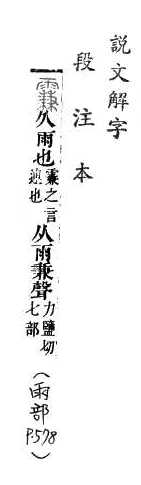 說文解字
段注本
䨬
久雨也
霖之言
連也
从雨兼聲
力鹽切
七部
(雨部
P.578)